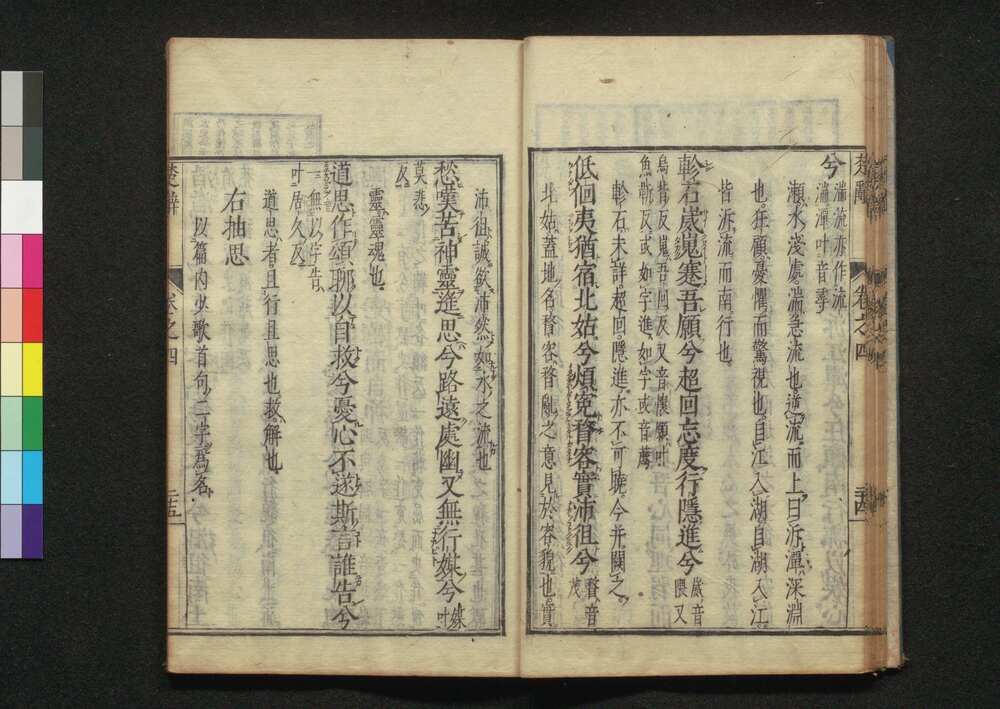 楚辭 卷之四 二十四
兮湍流亦作流
湍潭叶音尋
瀨水淺處湍急流也逆流而上曰泝潭深淵
也狂顧憂懼而驚視也自江入湖自湖入江
皆泝流而南行也
軫石崴嵬蹇吾願兮超回志度行隱進兮崴音隈又
烏皆反嵬吾回反又音懷願叶
魚靳反或如字進如字或音薦
軫石未詳超回隱進亦不可曉今并闕之
低佪夷猶宿北姑兮煩冤瞀容實沛徂兮瞀音茂
北姑蓋地名瞀容瞀亂之意見於容貌也實
沛徂誠欲沛然如水之流也
愁歎苦神靈遙思兮路遠處幽又無行媒兮媒叶
莫悲反
靈靈魂也
道思作頌聊以自救兮憂心不遂斯言誰告兮
一無以字告
叶居久反
道思者且行且思也救解也
右抽思
以篇内少歌首句二字爲名
楚辭 卷之四 二十五